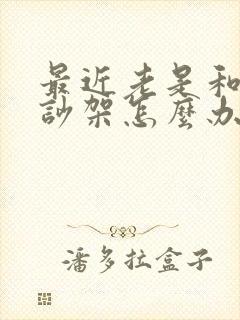 最近老是和
訃架怎麼办
潘多拉盒子